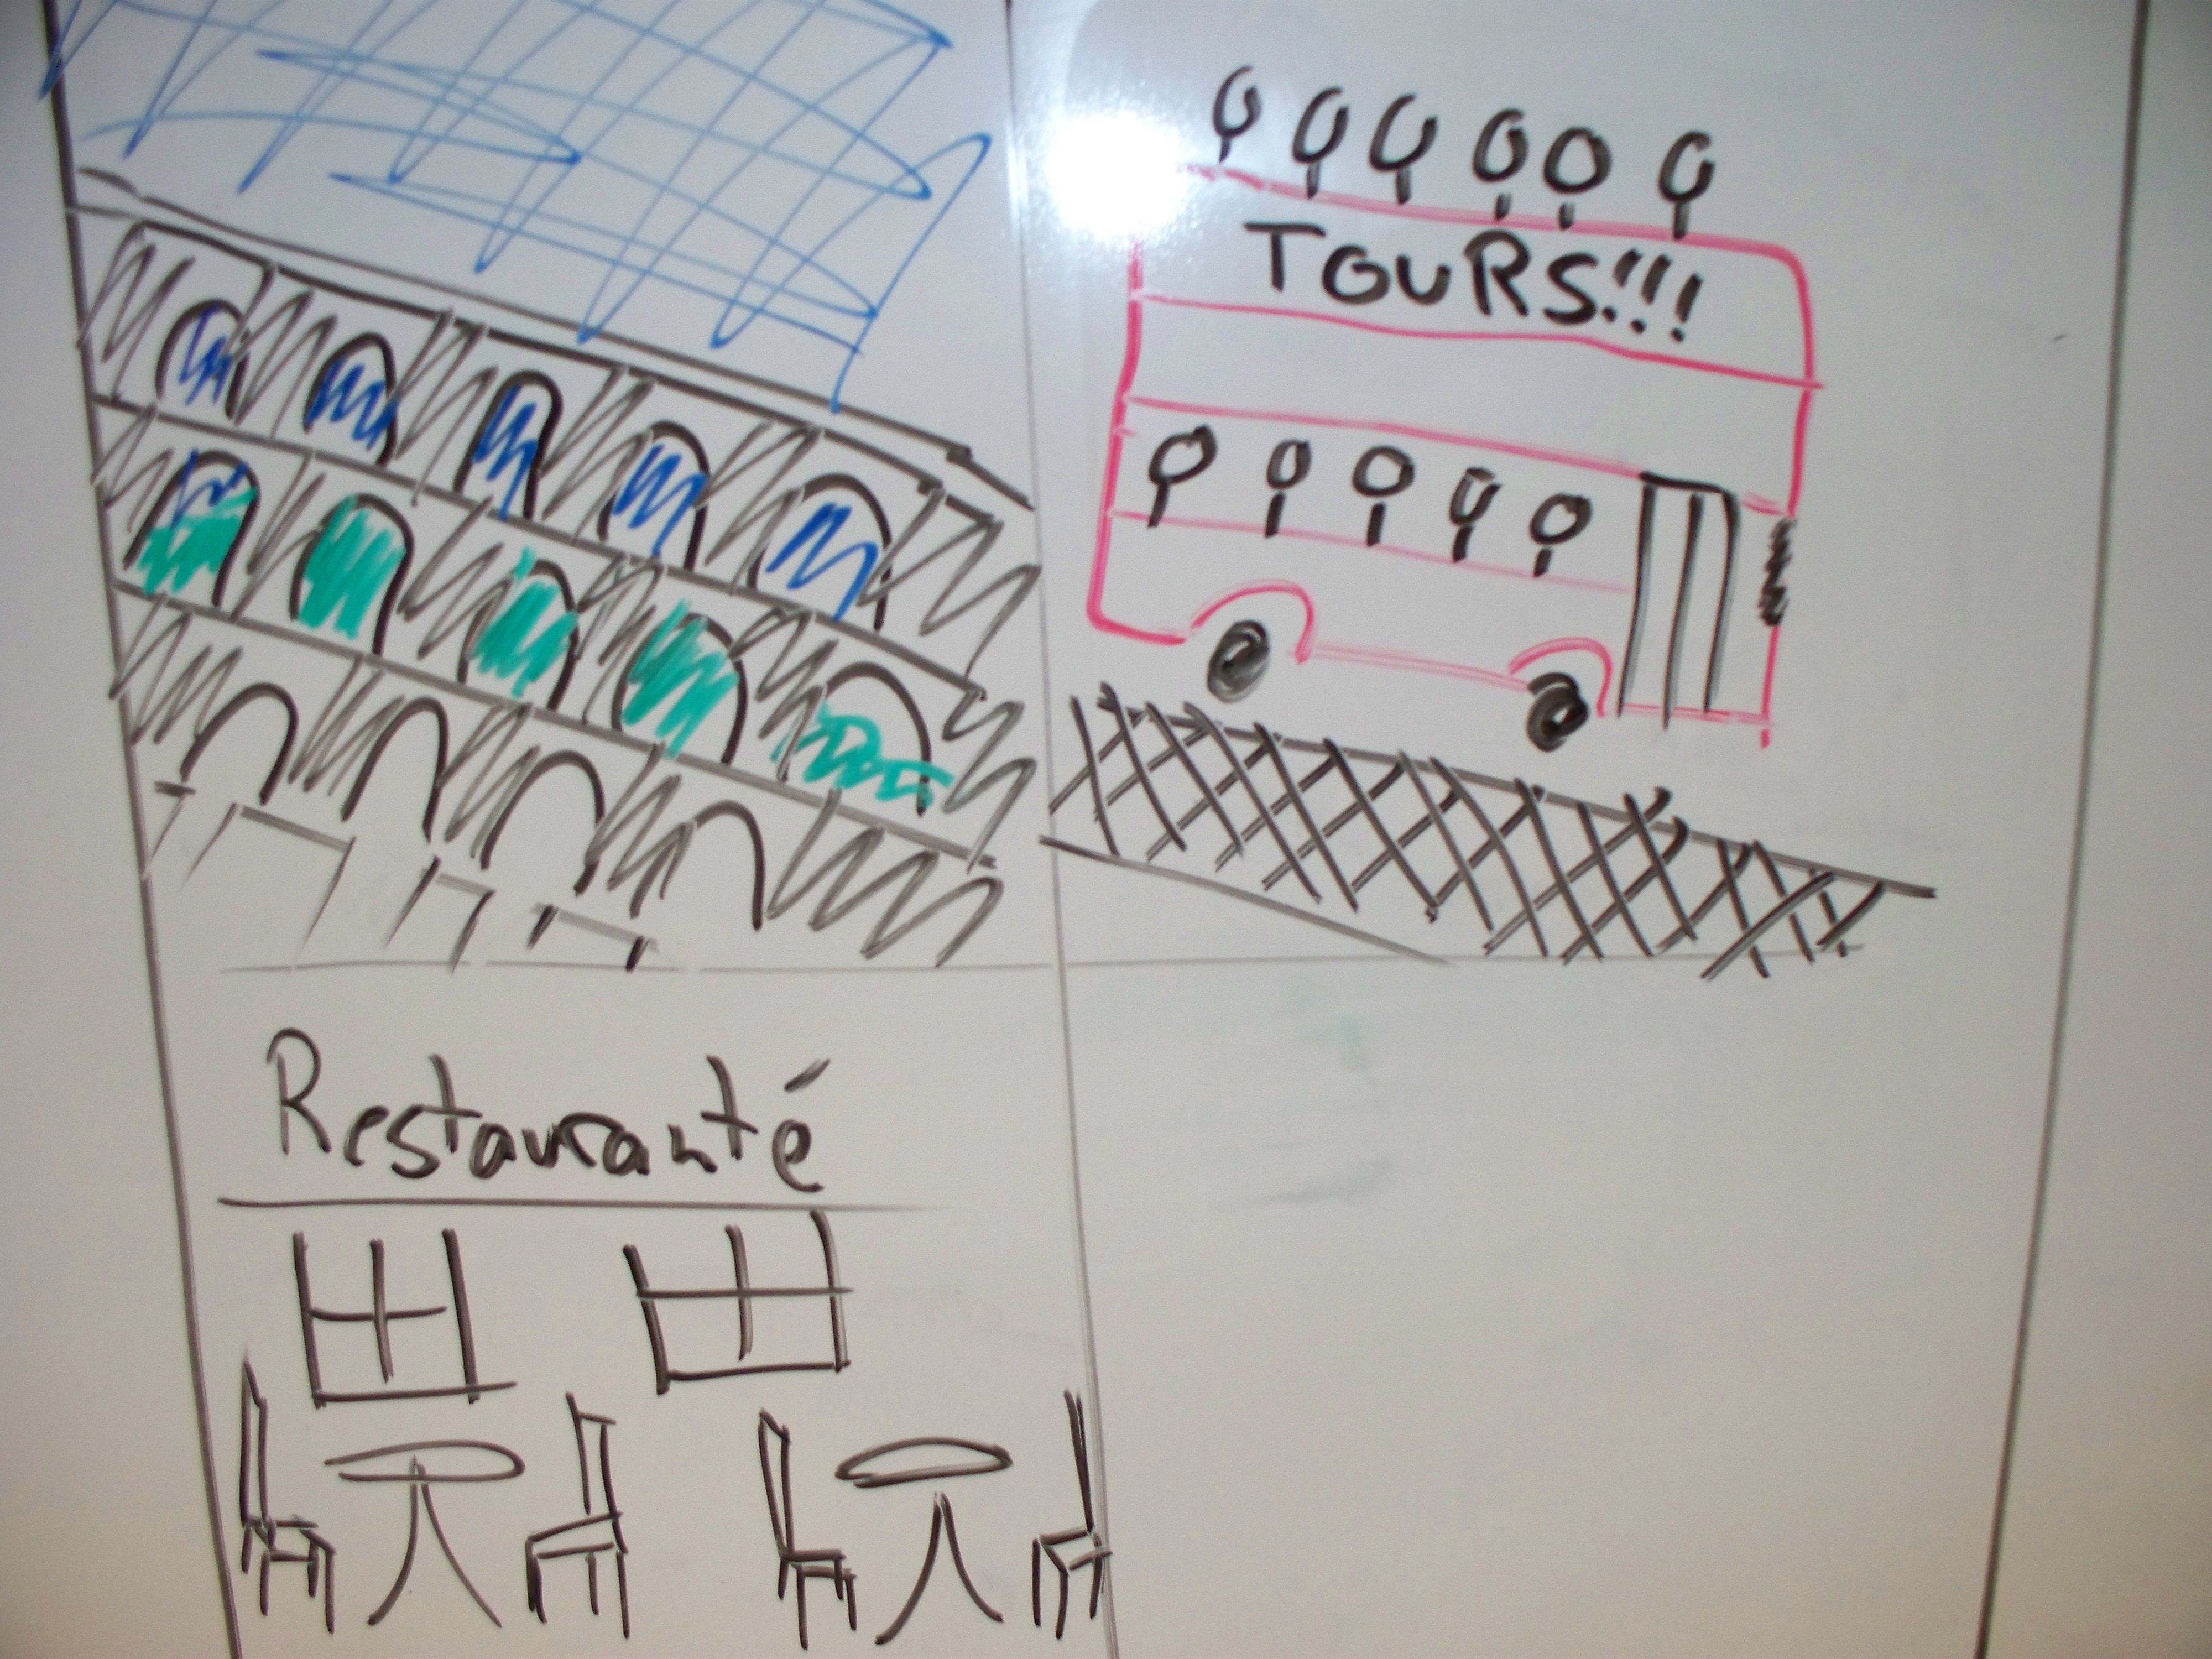 TOURS!!!
Restauranté